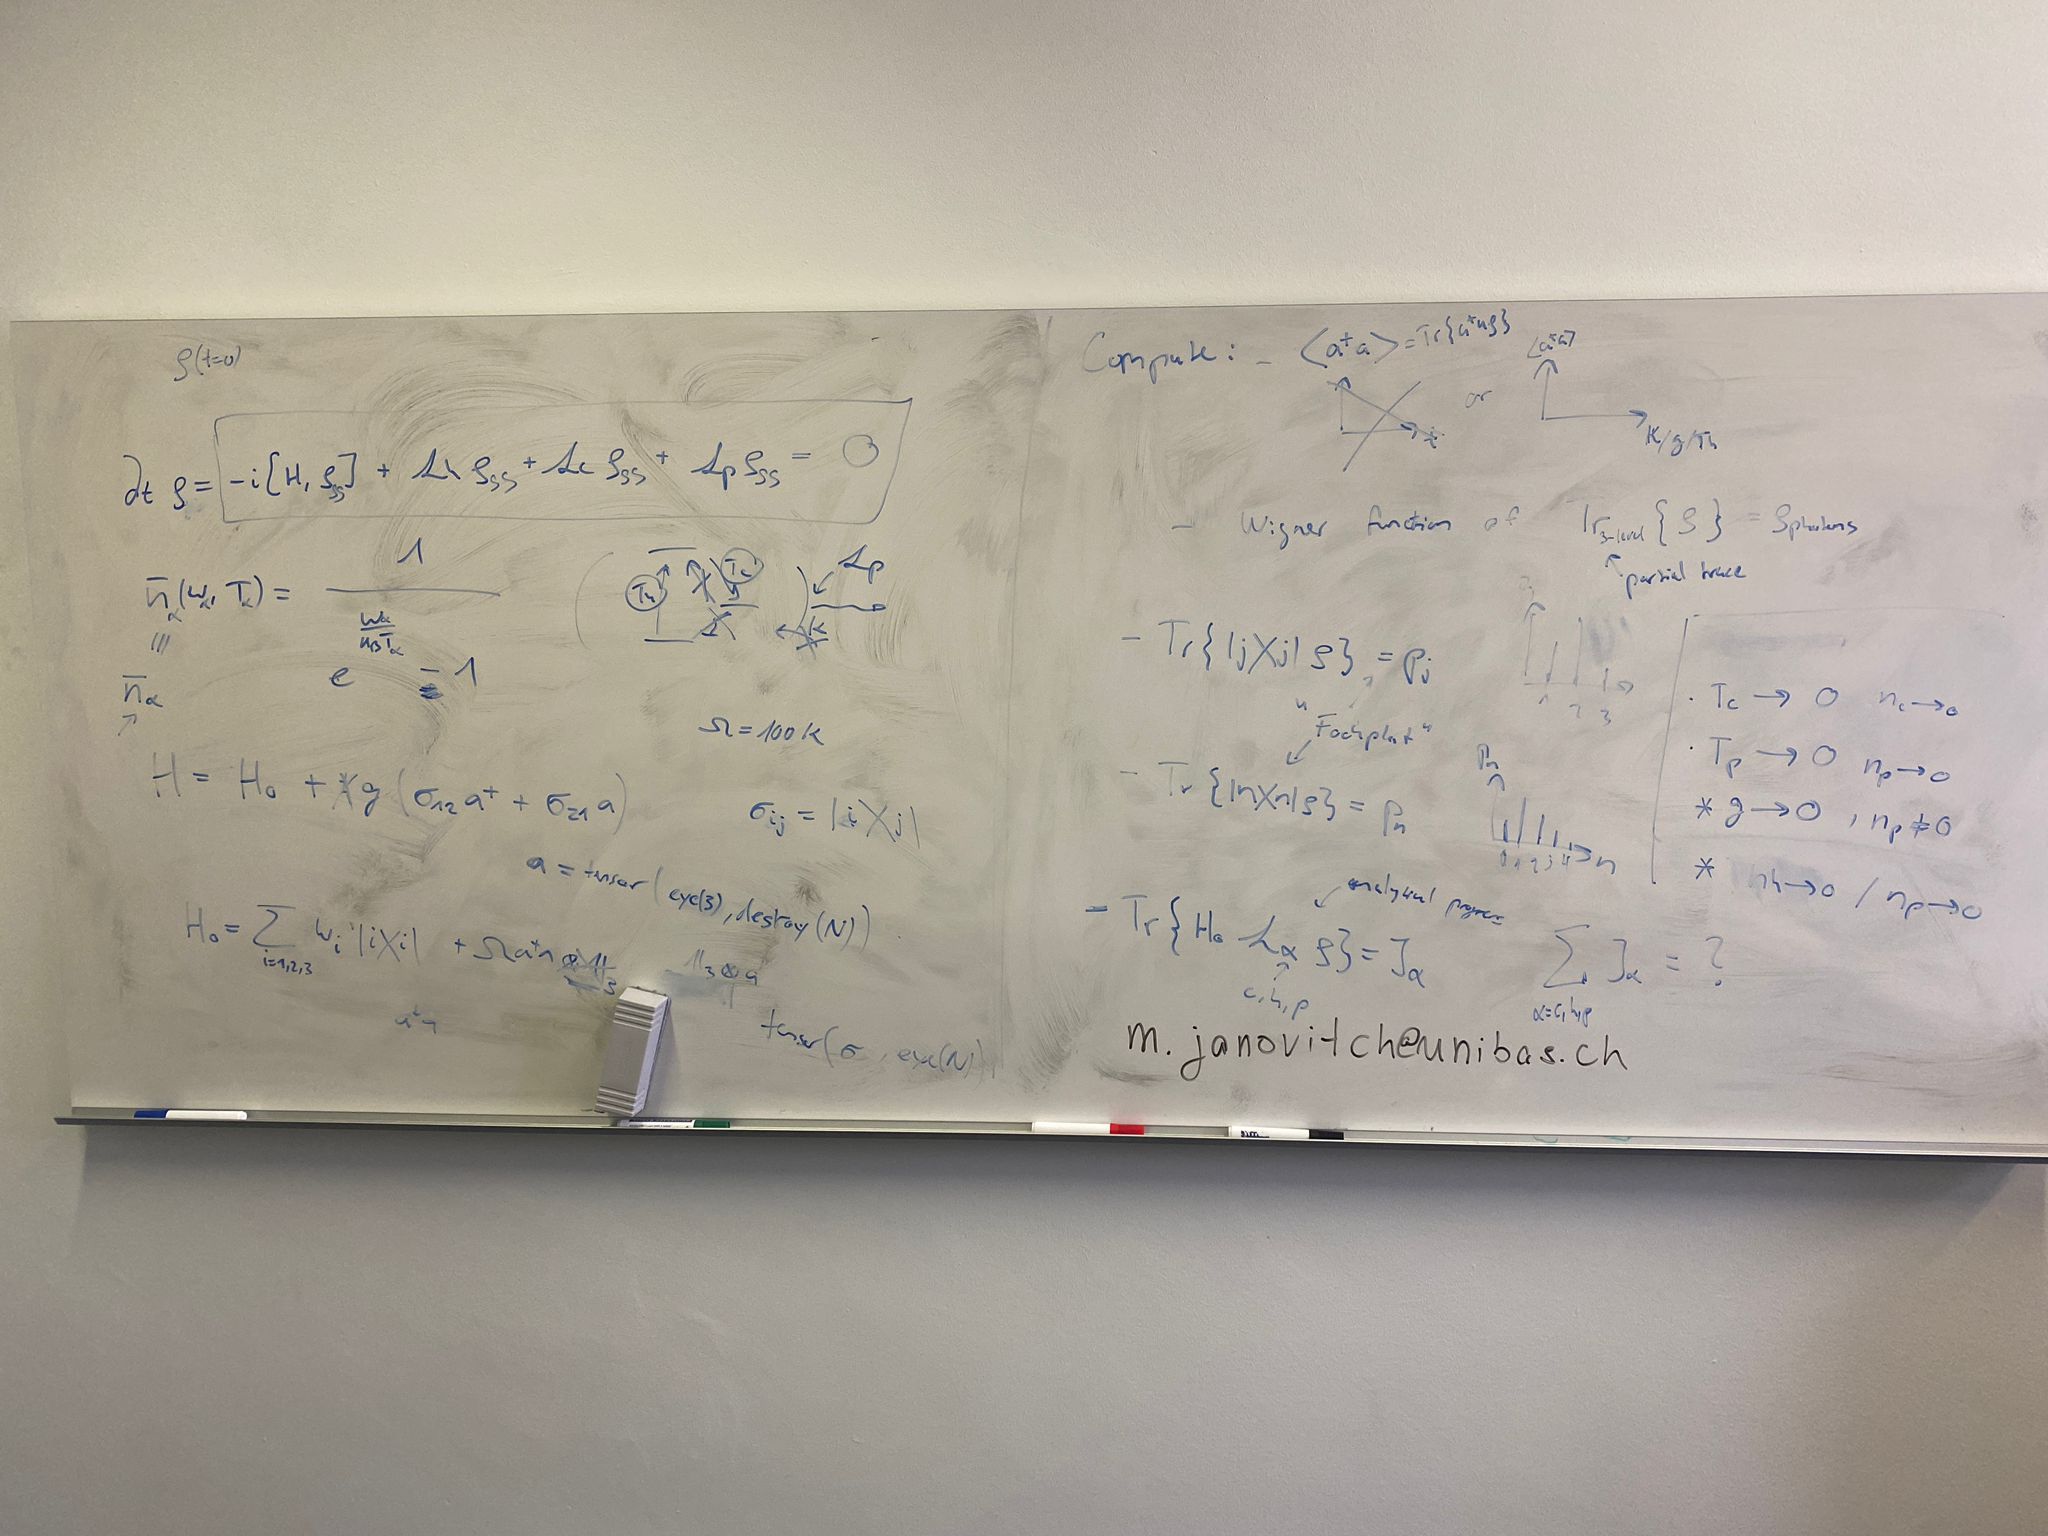 ρ(t=0)
∂t ρ = -i[H, ρss] + Lh ρss + Lc ρss + Lp ρss = 0
n̄α(ωα, Tα) = 1
ωα
kBTα
e - 1
|||
n̄α
Th Tc Lp
κ
Ω = 100κ
H = H₀ + g (σ₁₂ a† + σ₂₁ a)
σij = |i⟩⟨j|
a = tensor(eye(3), destroy(N))
H₀ = Σ ωi |i⟩⟨i| + Ω a†a
i=1,2,3
𝟙₃ ⊗ a
a†a
tensor(σ, eye(N))
Compute: - ⟨a†a⟩ = Tr{a†aρ}
t
or
⟨a†a⟩
κ/g/Th
- Wigner function of Tr3-level{ρ} = ρphotons
partial trace
- Tr{|j⟩⟨j| ρ} = pj
1 2 3
"Fockplot"
- Tr{|n⟩⟨n|ρ} = pn
Pn
0 1 2 3 4 n
- Tr{H₀ Lα ρ} = Jα
c, h, p
Σ Jα = ?
α=c,h,p
· Tc → 0 nc → 0
· Tp → 0 np → 0
* g → 0, np ≠ 0
* nh → 0 / np → 0
m.janovitch@unibas.ch